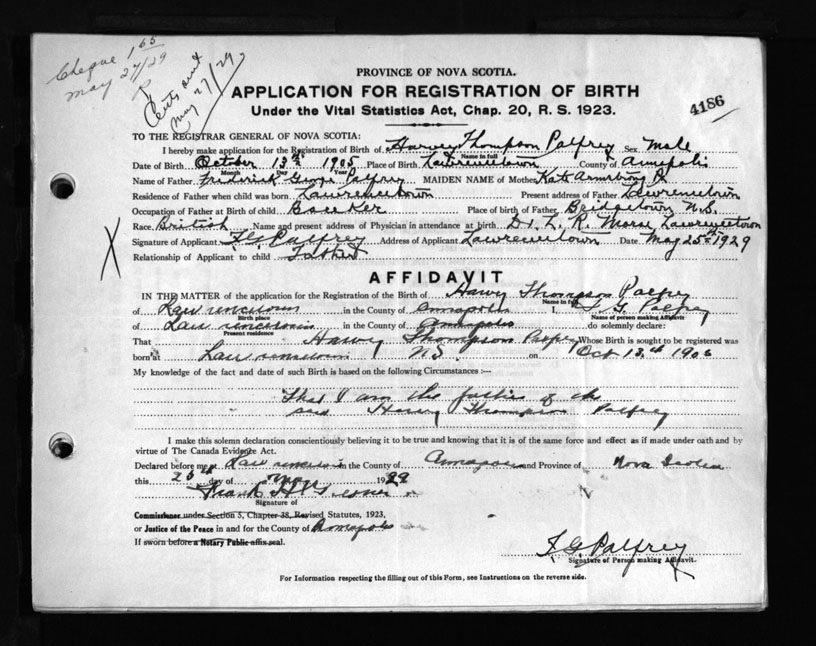 Cheque 1 65
May 27/29
Certs sent
May 27/29
PROVINCE OF NOVA SCOTIA.
APPLICATION FOR REGISTRATION OF BIRTH
Under the Vital Statistics Act, Chap. 20, R. S. 1923.
4186
TO THE REGISTRAR GENERAL OF NOVA SCOTIA:
I hereby make application for the Registration of Birth of Harvey Thompson Palfrey Sex Male
Name in full
Date of Birth October 13th 1905 Place of Birth Lawrencetown County of Annapolis
Month Day Year
Name of Father Frederick George Palfrey MAIDEN NAME of Mother Kate Armstrong
Residence of Father when child was born Lawrencetown Present address of Father Lawrencetown
Occupation of Father at Birth of child Banker Place of birth of Father Bridgetown N.S.
Race British Name and present address of Physician in attendance at birth Dr. L. R. Morse Lawrencetown
Signature of Applicant F G Palfrey Address of Applicant Lawrencetown Date May 25th 1929
Relationship of Applicant to child Father
X
AFFIDAVIT
IN THE MATTER of the application for the Registration of the Birth of Harvy Thompson Palfrey
Name in full
of Lawrencetown in the County of Annapolis I, F. G. Palfrey
Birth place Name of person making Affidavit
of Lawrencetown in the County of Annapolis do solemnly declare:
Present residence
That Harvey Thompson Palfrey Whose Birth is sought to be registered was
born at Lawrencetown N.S. on Oct 13th 1905
My knowledge of the fact and date of such Birth is based on the following Circumstances :—
That I am the father of the
said Harvey Thompson Palfrey
I make this solemn declaration conscientiously believing it to be true and knowing that it is of the same force and effect as if made under oath and by
virtue of The Canada Evidence Act.
Declared before me at Lawrencetown in the County of Annapolis and Province of Nova Scotia
this 25th day of May 1929
Frank H
Signature of
Commissioner under Section 5, Chapter 38, Revised Statutes, 1923,
or Justice of the Peace in and for the County of Annapolis
If sworn before a Notary Public affix seal.
F. G. Palfrey
Signature of Person making Affidavit.
For Information respecting the filling out of this Form, see Instructions on the reverse side.